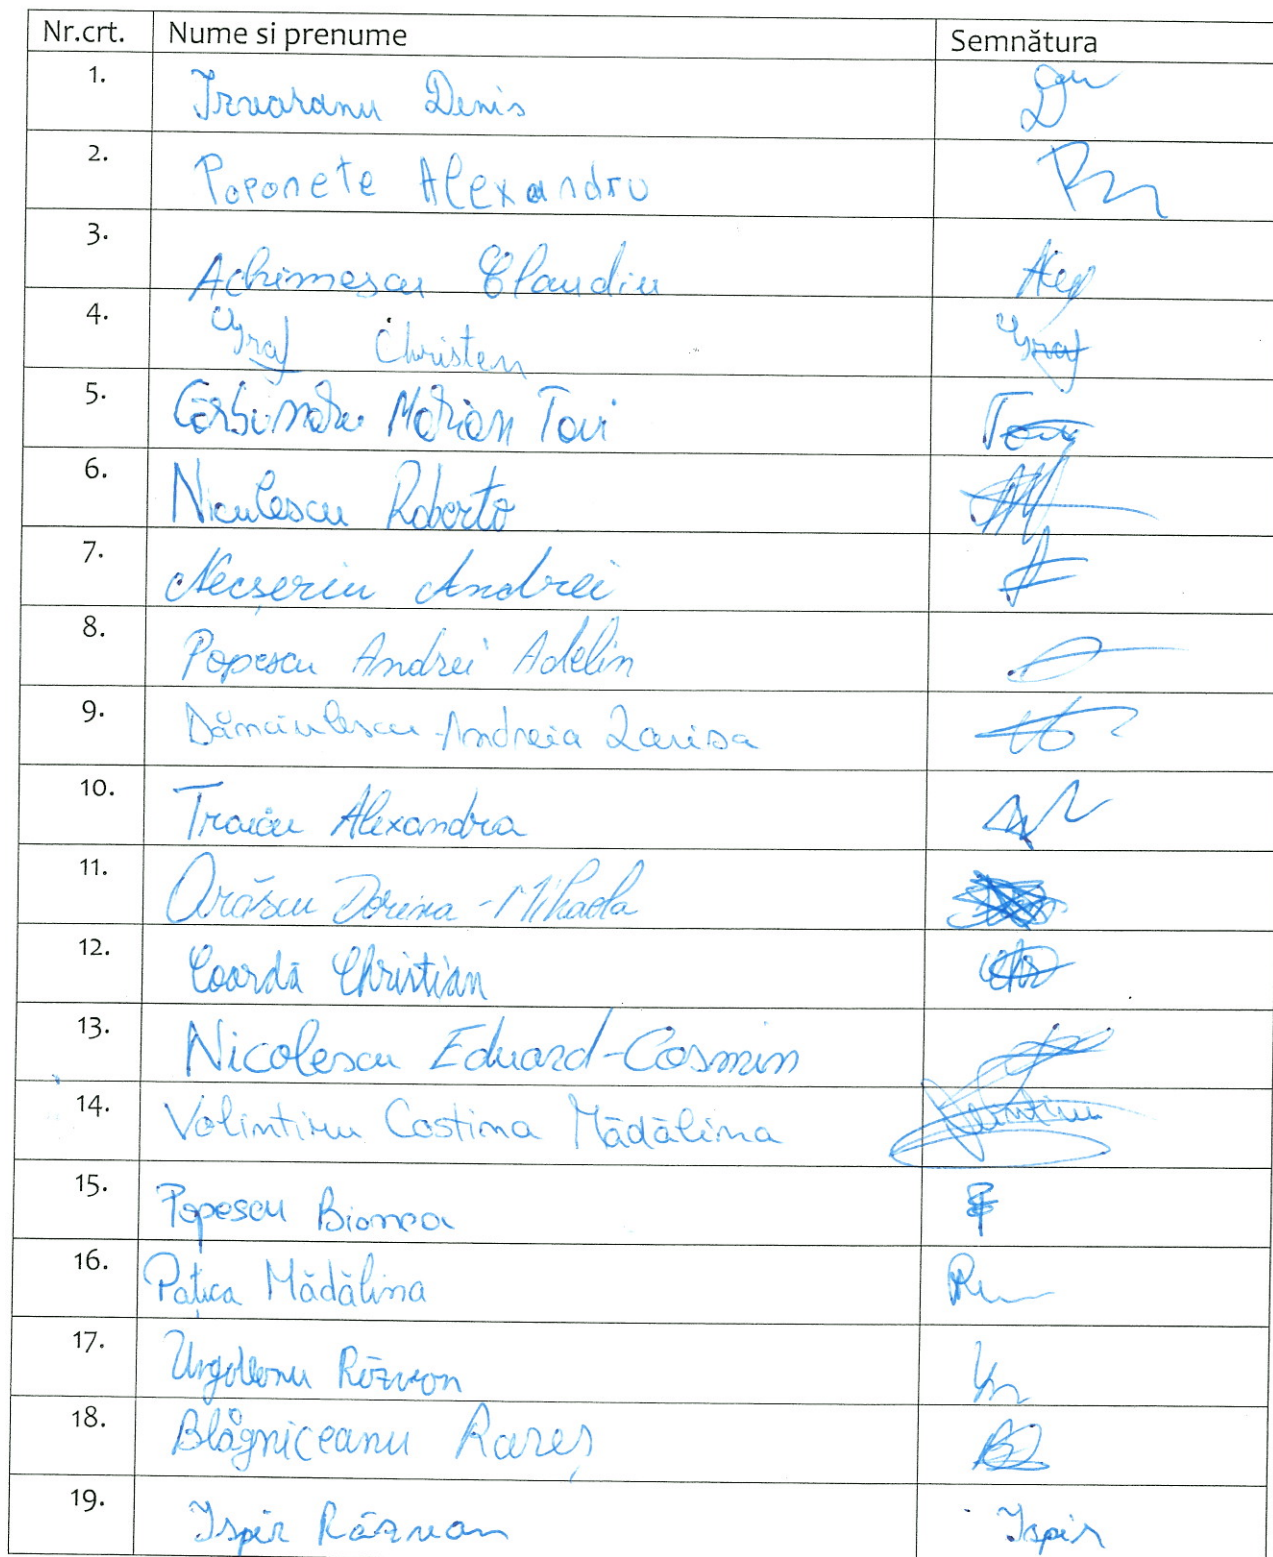 Nr.crt. Nume si prenume Semnătura
1. Denis
2. Poponete Alexandru
3. Achimescu Claudiu
4. Graf Christen Graf
5. Marian Tovi Tovi
6. Niculescu Roberto
7. Necșeriu Andrei
8. Popescu Andrei Adelin
9. Dănciulescu Andreia Larisa
10. Alexandra
11. Dorina-Mihaela
12. Coardă Christian
13. Nicolescu Eduard-Cosmin
14. Volintiru Costina Mădălina Volintiru
15. Popescu Bianca
16. Pațica Mădălina
17. Răzvan
18. Blăgniceanu Rareș
19. Ispir Răzvan Ispir